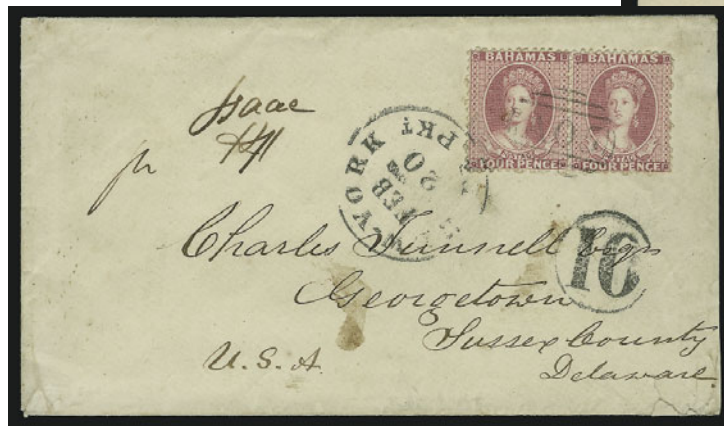 BAHAMAS BAHAMAS
FOUR PENCE FOUR PENCE
Isaac
YORK PKT
FEB
20
10
Charles Tunnell Esqr
Georgetown
Sussex County
Delaware.
U.S.A.